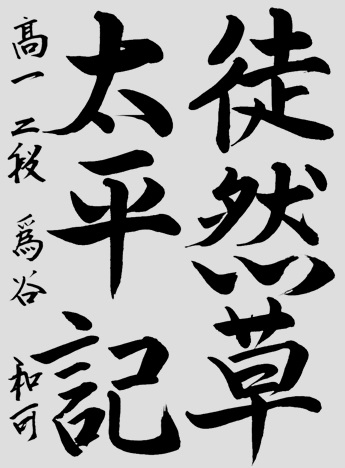 徒然草
太平記
高一 二段 為谷 和可